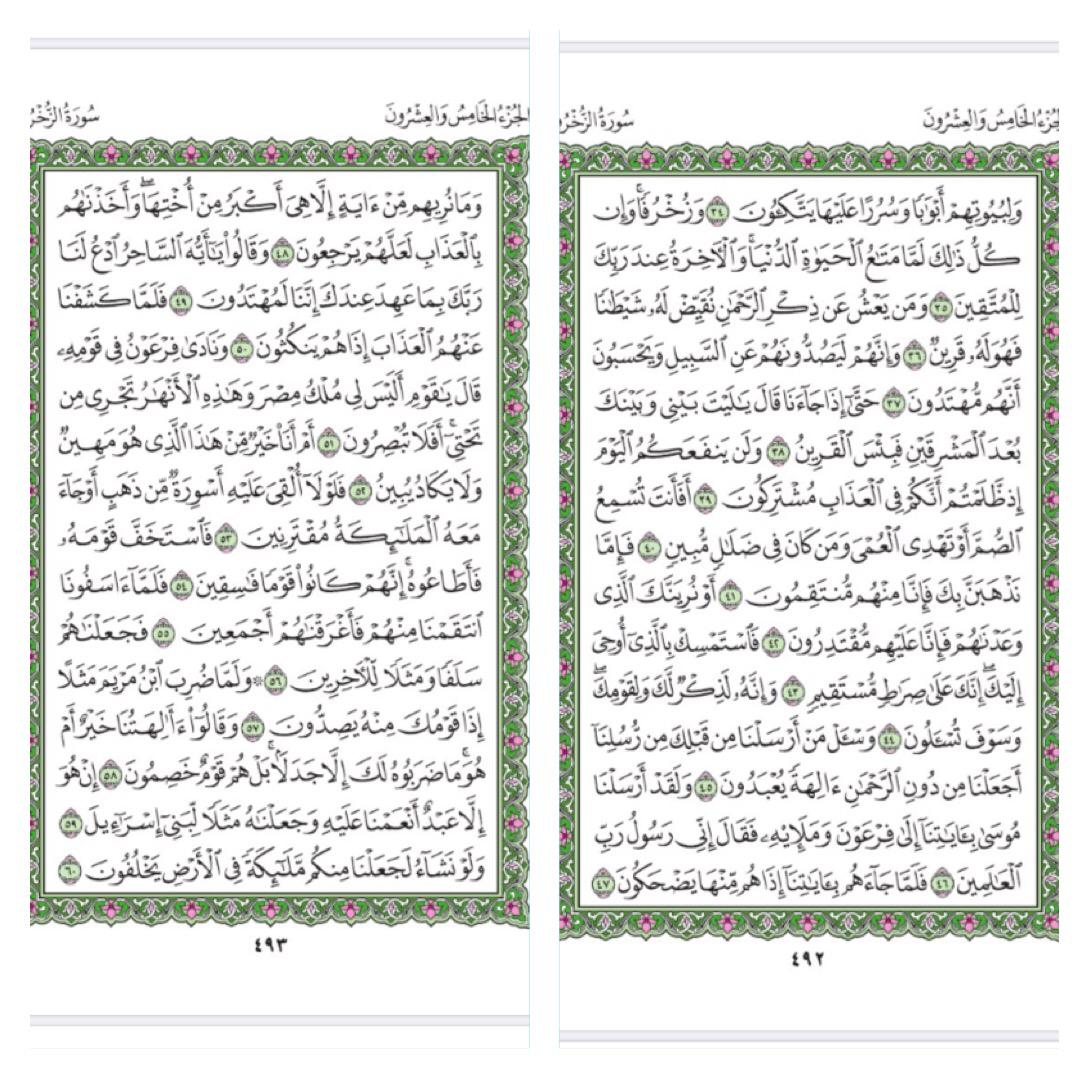 الجُزْءُ الخَامِسُ وَالعِشْرُونَ سُورَةُ الزُّخْرُ
وَلِبُيُوتِهِمْ أَبْوَٰبًا وَسُرُرًا عَلَيْهَا يَتَّكِـُٔونَ ٣٤ وَزُخْرُفًا ۚ وَإِن
كُلُّ ذَٰلِكَ لَمَّا مَتَٰعُ ٱلْحَيَوٰةِ ٱلدُّنْيَا ۚ وَٱلْـَٔاخِرَةُ عِندَ رَبِّكَ
لِلْمُتَّقِينَ ٣٥ وَمَن يَعْشُ عَن ذِكْرِ ٱلرَّحْمَٰنِ نُقَيِّضْ لَهُۥ شَيْطَٰنًا
فَهُوَ لَهُۥ قَرِينٌ ٣٦ وَإِنَّهُمْ لَيَصُدُّونَهُمْ عَنِ ٱلسَّبِيلِ وَيَحْسَبُونَ
أَنَّهُم مُّهْتَدُونَ ٣٧ حَتَّىٰٓ إِذَا جَآءَنَا قَالَ يَٰلَيْتَ بَيْنِى وَبَيْنَكَ
بُعْدَ ٱلْمَشْرِقَيْنِ فَبِئْسَ ٱلْقَرِينُ ٣٨ وَلَن يَنفَعَكُمُ ٱلْيَوْمَ
إِذ ظَّلَمْتُمْ أَنَّكُمْ فِى ٱلْعَذَابِ مُشْتَرِكُونَ ٣٩ أَفَأَنتَ تُسْمِعُ
ٱلصُّمَّ أَوْ تَهْدِى ٱلْعُمْىَ وَمَن كَانَ فِى ضَلَٰلٍ مُّبِينٍ ٤٠ فَإِمَّا
نَذْهَبَنَّ بِكَ فَإِنَّا مِنْهُم مُّنتَقِمُونَ ٤١ أَوْ نُرِيَنَّكَ ٱلَّذِى
وَعَدْنَٰهُمْ فَإِنَّا عَلَيْهِم مُّقْتَدِرُونَ ٤٢ فَٱسْتَمْسِكْ بِٱلَّذِىٓ أُوحِىَ
إِلَيْكَ ۖ إِنَّكَ عَلَىٰ صِرَٰطٍ مُّسْتَقِيمٍ ٤٣ وَإِنَّهُۥ لَذِكْرٌ لَّكَ وَلِقَوْمِكَ ۖ
وَسَوْفَ تُسْـَٔلُونَ ٤٤ وَسْـَٔلْ مَنْ أَرْسَلْنَا مِن قَبْلِكَ مِن رُّسُلِنَآ
أَجَعَلْنَا مِن دُونِ ٱلرَّحْمَٰنِ ءَالِهَةً يُعْبَدُونَ ٤٥ وَلَقَدْ أَرْسَلْنَا
مُوسَىٰ بِـَٔايَٰتِنَآ إِلَىٰ فِرْعَوْنَ وَمَلَإِيْهِۦ فَقَالَ إِنِّى رَسُولُ رَبِّ
ٱلْعَٰلَمِينَ ٤٦ فَلَمَّا جَآءَهُم بِـَٔايَٰتِنَآ إِذَا هُم مِّنْهَا يَضْحَكُونَ ٤٧
٤٩٢
الجُزْءُ الخَامِسُ وَالعِشْرُونَ سُورَةُ الزُّخْرُ
وَمَا نُرِيهِم مِّنْ ءَايَةٍ إِلَّا هِىَ أَكْبَرُ مِنْ أُخْتِهَا ۖ وَأَخَذْنَٰهُم
بِٱلْعَذَابِ لَعَلَّهُمْ يَرْجِعُونَ ٤٨ وَقَالُوا۟ يَٰٓأَيُّهَ ٱلسَّاحِرُ ٱدْعُ لَنَا
رَبَّكَ بِمَا عَهِدَ عِندَكَ إِنَّنَا لَمُهْتَدُونَ ٤٩ فَلَمَّا كَشَفْنَا
عَنْهُمُ ٱلْعَذَابَ إِذَا هُمْ يَنكُثُونَ ٥٠ وَنَادَىٰ فِرْعَوْنُ فِى قَوْمِهِۦ
قَالَ يَٰقَوْمِ أَلَيْسَ لِى مُلْكُ مِصْرَ وَهَٰذِهِ ٱلْأَنْهَٰرُ تَجْرِى مِن
تَحْتِىٓ ۖ أَفَلَا تُبْصِرُونَ ٥١ أَمْ أَنَا۠ خَيْرٌ مِّنْ هَٰذَا ٱلَّذِى هُوَ مَهِينٌ
وَلَا يَكَادُ يُبِينُ ٥٢ فَلَوْلَآ أُلْقِىَ عَلَيْهِ أَسْوِرَةٌ مِّن ذَهَبٍ أَوْ جَآءَ
مَعَهُ ٱلْمَلَٰٓئِكَةُ مُقْتَرِنِينَ ٥٣ فَٱسْتَخَفَّ قَوْمَهُۥ
فَأَطَاعُوهُ ۚ إِنَّهُمْ كَانُوا۟ قَوْمًا فَٰسِقِينَ ٥٤ فَلَمَّآ ءَاسَفُونَا
ٱنتَقَمْنَا مِنْهُمْ فَأَغْرَقْنَٰهُمْ أَجْمَعِينَ ٥٥ فَجَعَلْنَٰهُمْ
سَلَفًا وَمَثَلًا لِّلْـَٔاخِرِينَ ٥٦ ۞ وَلَمَّا ضُرِبَ ٱبْنُ مَرْيَمَ مَثَلًا
إِذَا قَوْمُكَ مِنْهُ يَصِدُّونَ ٥٧ وَقَالُوٓا۟ ءَأَٰلِهَتُنَا خَيْرٌ أَمْ
هُوَ ۚ مَا ضَرَبُوهُ لَكَ إِلَّا جَدَلًۢا ۚ بَلْ هُمْ قَوْمٌ خَصِمُونَ ٥٨ إِنْ هُوَ
إِلَّا عَبْدٌ أَنْعَمْنَا عَلَيْهِ وَجَعَلْنَٰهُ مَثَلًا لِّبَنِىٓ إِسْرَٰٓءِيلَ ٥٩
وَلَوْ نَشَآءُ لَجَعَلْنَا مِنكُم مَّلَٰٓئِكَةً فِى ٱلْأَرْضِ يَخْلُفُونَ ٦٠
٤٩٣